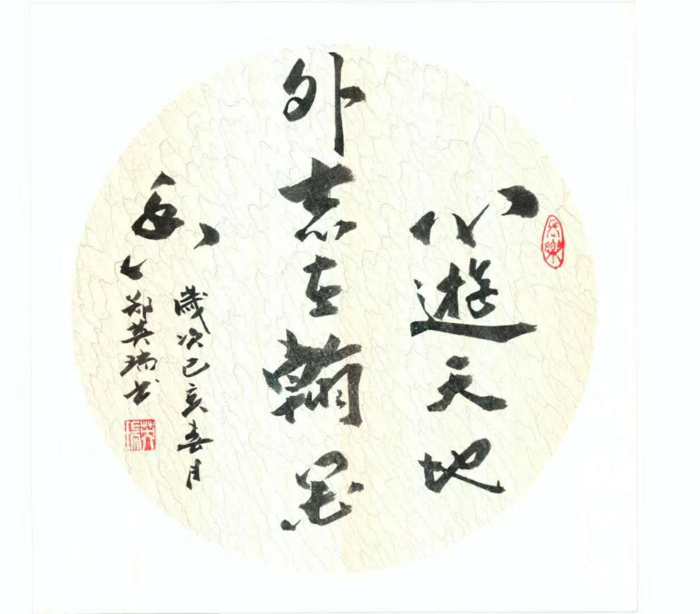 心遊天地
外志在翰墨
歲次己亥春月
郑英瑞书
英瑞